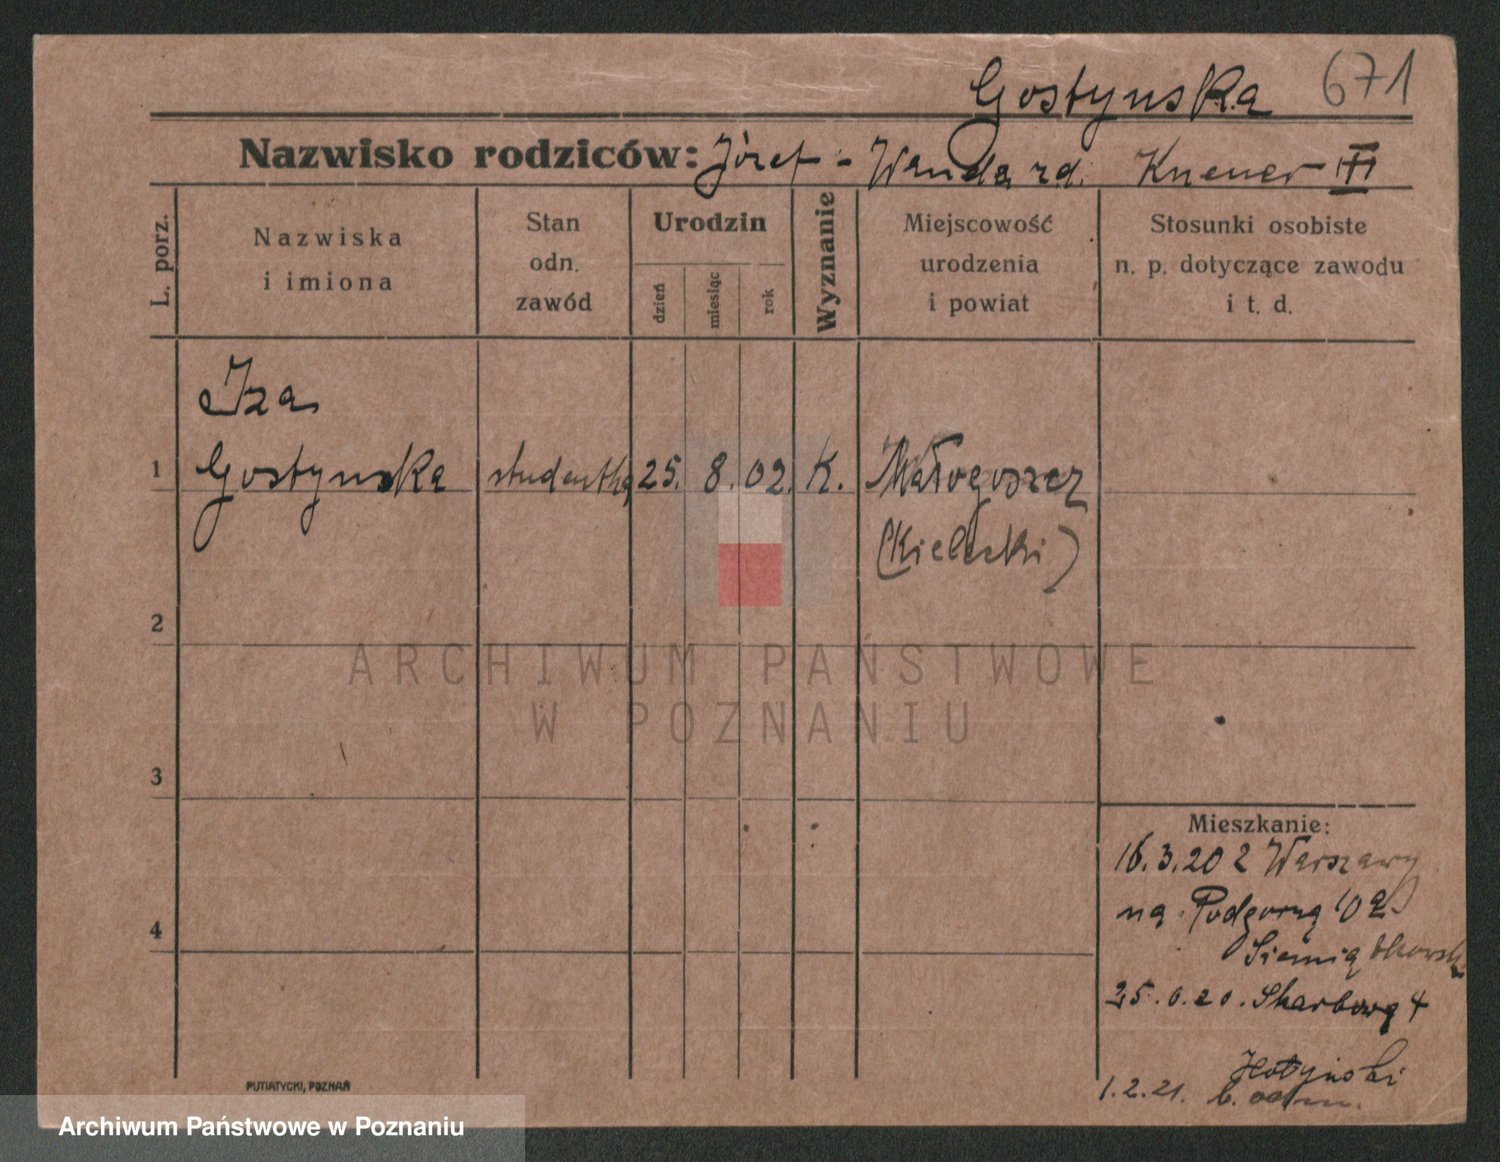 Gostynska 671
Nazwisko rodziców: Józef - Wanda zd. Knener III
L. porz.
Nazwiska
i imiona
Stan
odn.
zawód
Urodzin
dzień
miesiąc
rok
Wyznanie
Miejscowość
urodzenia
i powiat
Stosunki osobiste
n. p. dotyczące zawodu
i t. d.
Iza
1 Gostynska studentka 25. 8. 02. K. Małogoszcz
(Kielecki)
2
ARCHIWUM PAŃSTWOWE
W POZNANIU
3
4
Mieszkanie:
16.3.20 z Warszawy
na Podgorna 10a
25.6.20. Skarbowa 4
1.2.21.
PUTIATYCKI, POZNAŃ
Archiwum Państwowe w Poznaniu